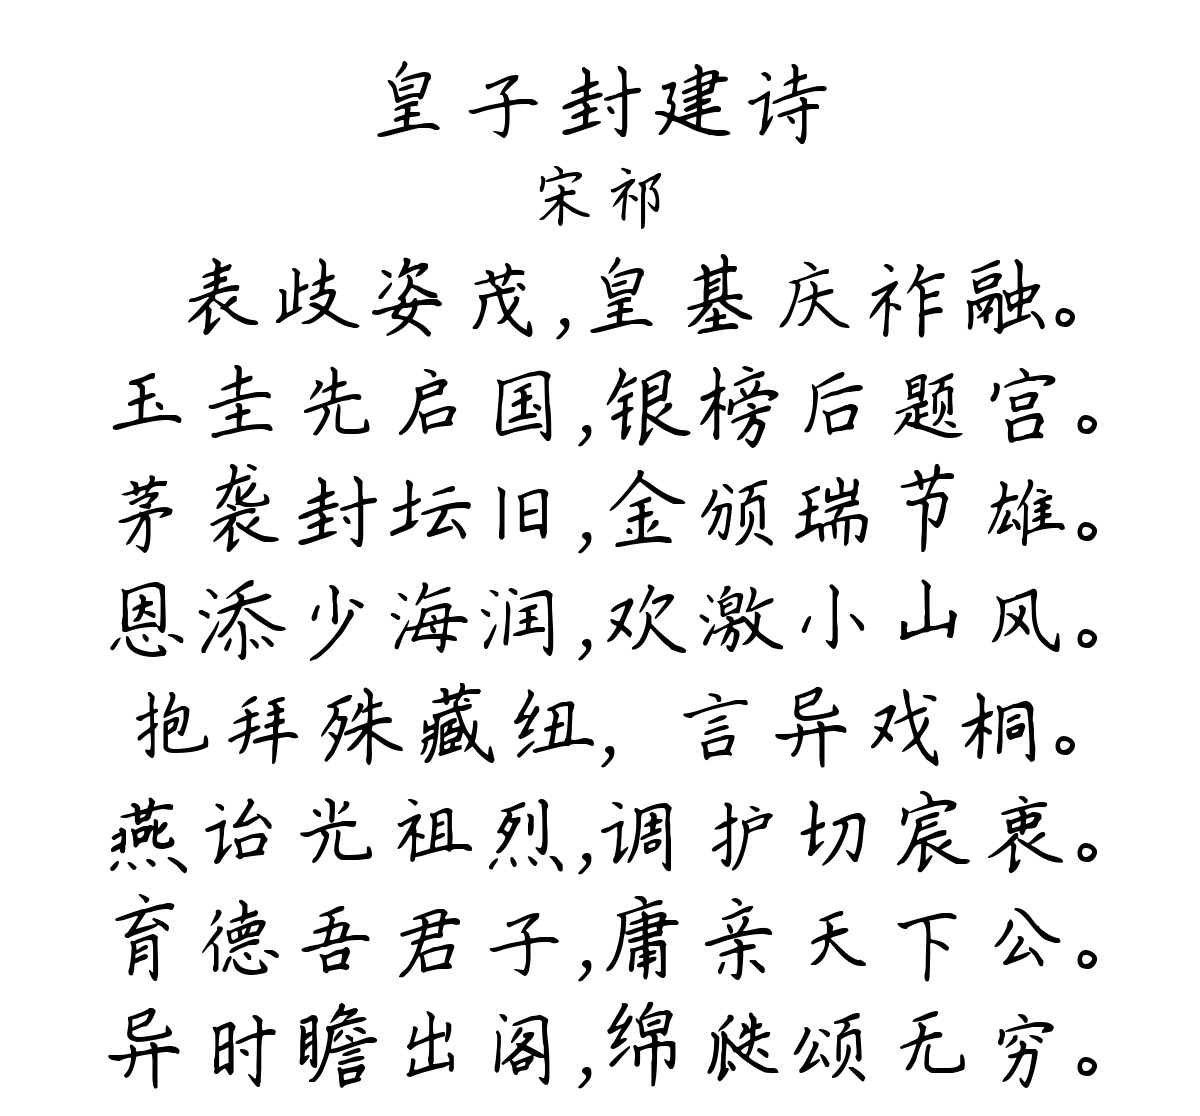 皇子封建诗
宋祁
表歧姿茂,皇基庆祚融。
玉圭先启国,银榜后题宫。
茅袭封坛旧,金颁瑞节雄。
恩添少海润,欢激小山风。
抱拜殊藏纽,言异戏桐。
燕诒光祖烈,调护切宸衷。
育德吾君子,庸亲天下公。
异时瞻出阁,绵瓞颂无穷。